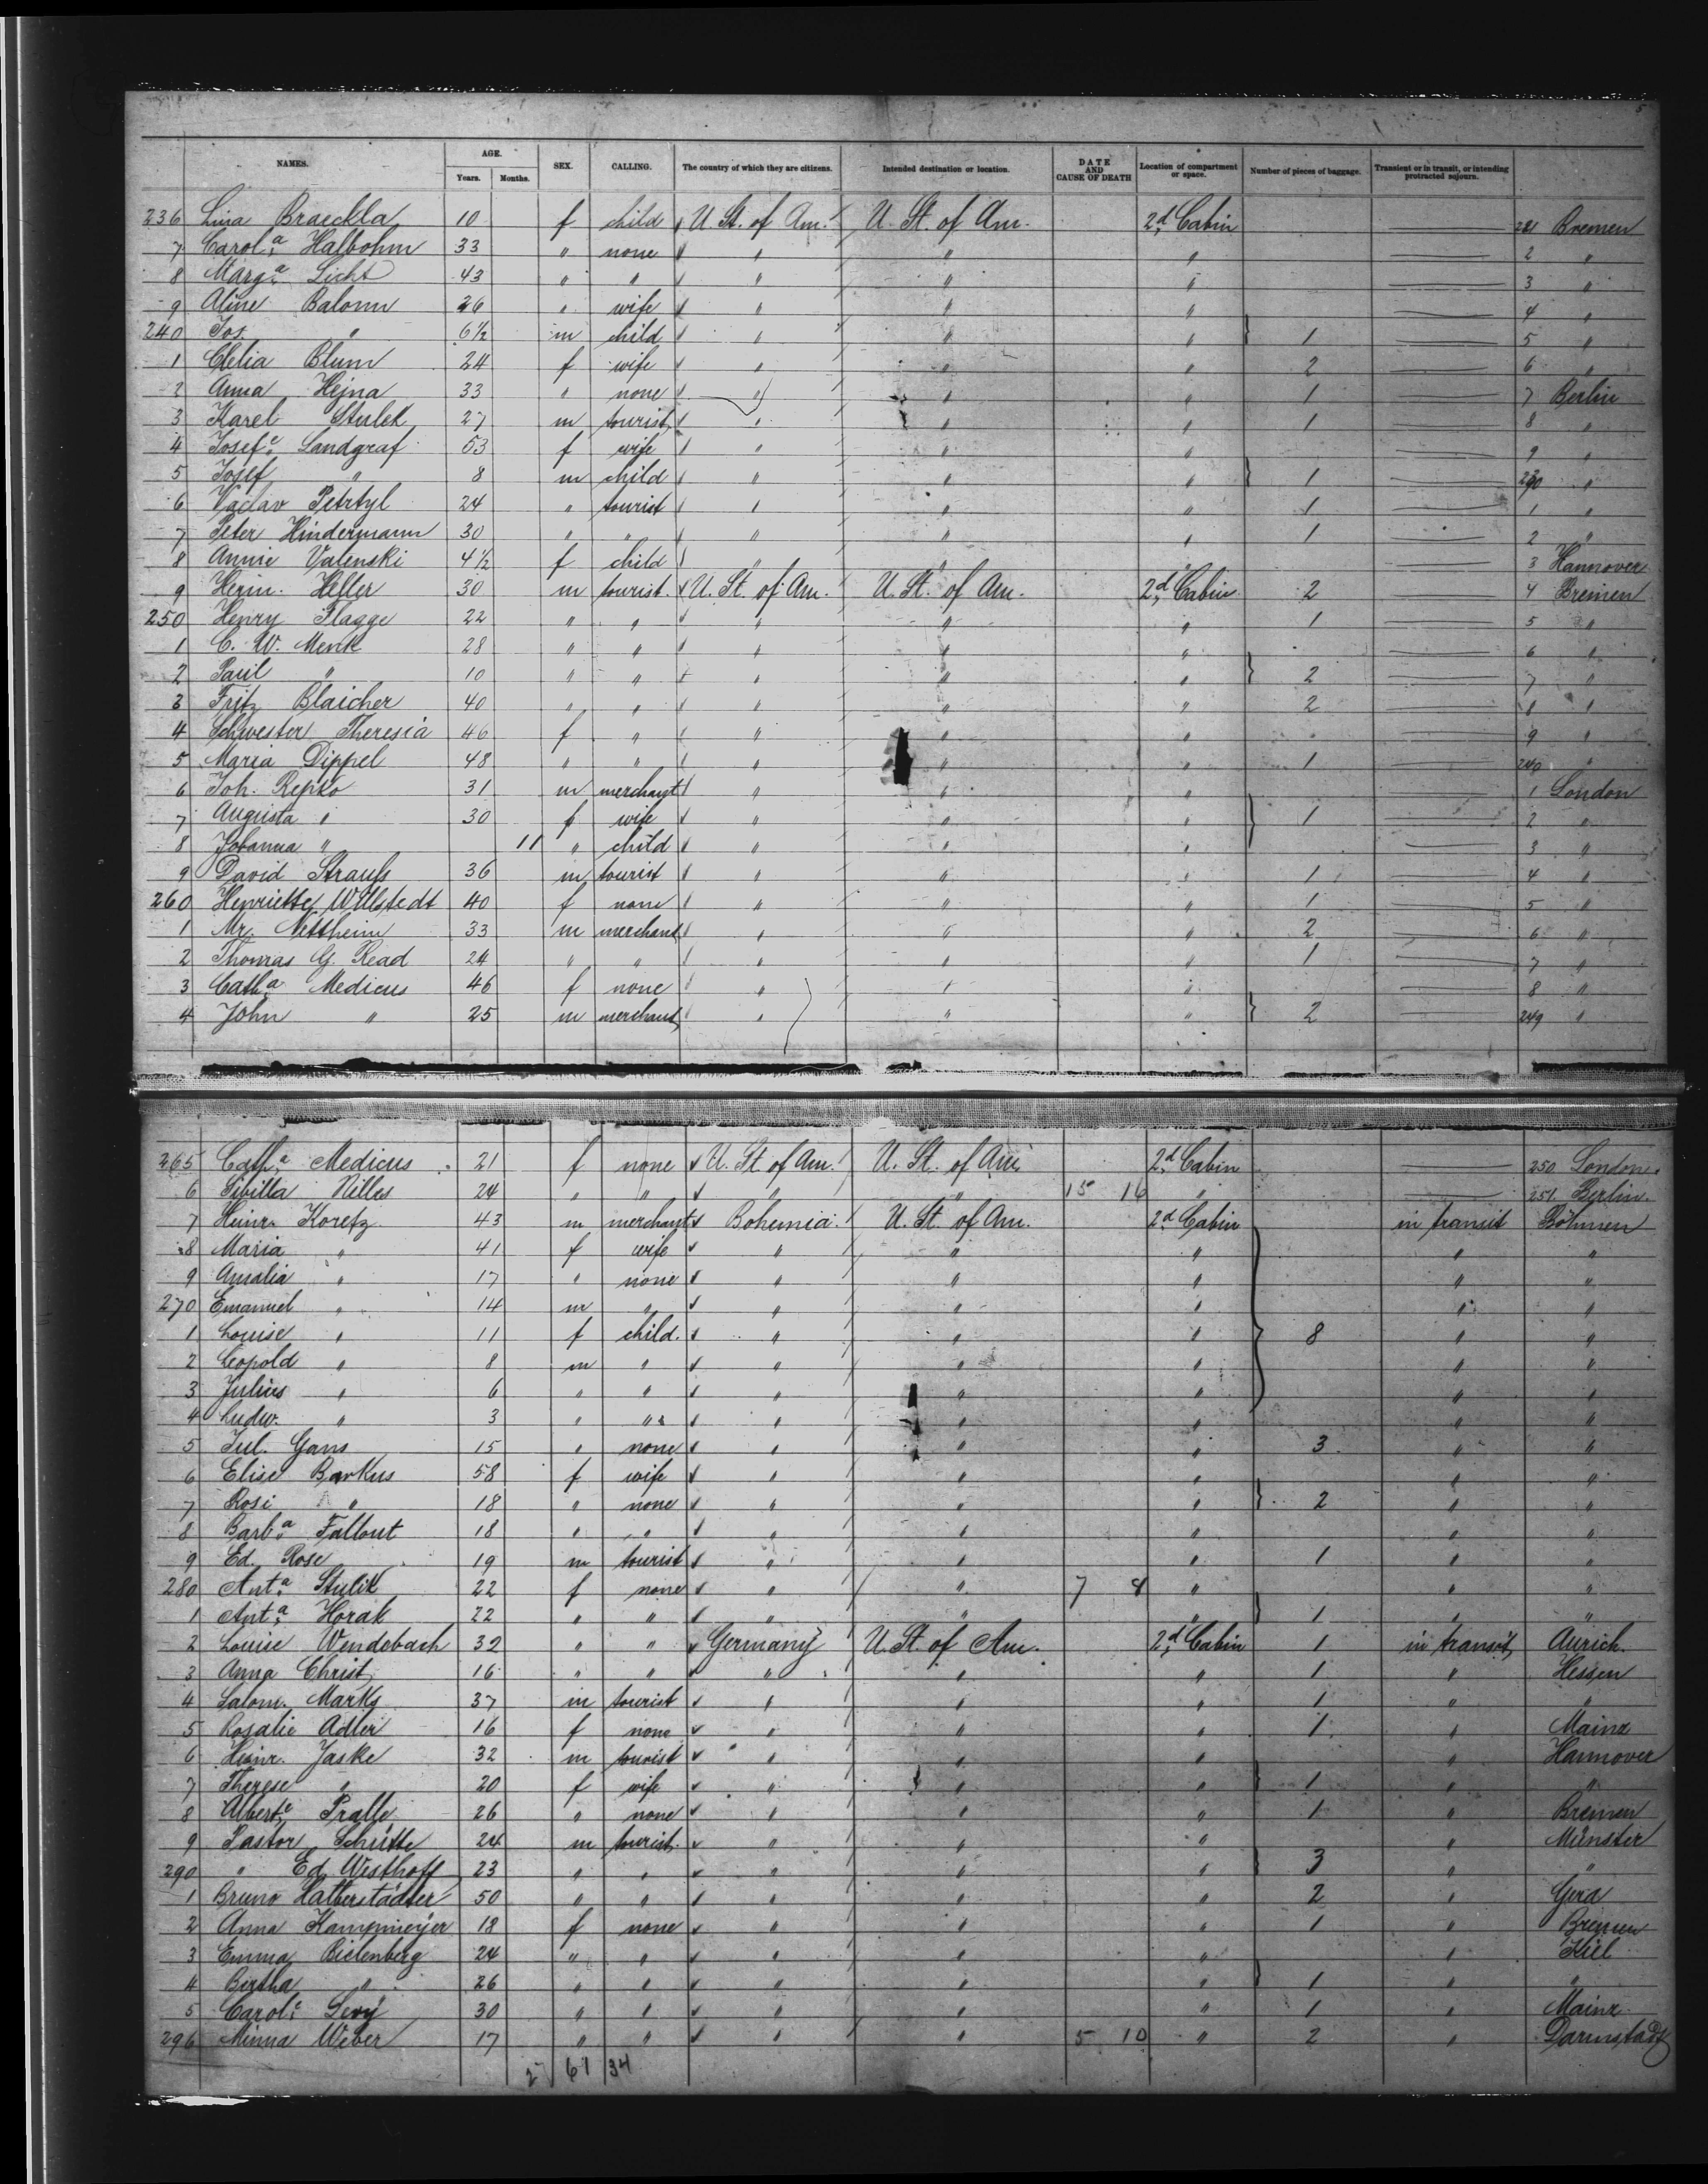 5
NAMES. AGE. SEX. CALLING. The country of which they are citizens. Intended destination or location. DATE AND CAUSE OF DEATH Location of compartment or space. Number of pieces of baggage. Transient or in transit, or intending protracted sojourn.
Years. Months.
236 Lina Braeckla 10 f child U. St. of Am. U. St. of Am. 2d Cabin Bremen
7 Carola Halbohm 33 " none " " " 2 "
8 Marga Licht 43 " " " " " 3 "
9 Aline Balonn 26 " wife " " " 4 "
240 Jos. " 6 1/2 m child " " " 1 5 "
1 Clelia Blum 24 f wife " " " 2 6 "
2 Anna Hejna 33 " none " " " 1 7 Berlin
3 Karel Stulek 27 m tourist " " " 1 8 "
4 Josefe Landgraf 53 f wife " " " 9 "
5 Josef " 8 m child " " " 1 230 "
6 Vaclav Petrtyl 24 " tourist " " " 1 1 "
7 Peter Hindermann 30 " " " " " 1 2 "
8 Annie Valenski 4 1/2 f child " " " 3 Hannover
9 Herm. Heller 30 m tourist. U. St. of Am. U. St. of Am. 2d Cabin 2 4 Bremen
250 Henry Flagge 22 " " " " " 1 5 "
1 C. W. Menk 28 " " " " " 6 "
2 Paul " 10 " " " " " 2 7 "
3 Fritz Blaicher 40 " " " " " 2 8 "
4 Schwester Theresia 46 f " " " " 9 "
5 Maria Dippel 48 " " " " " 1 240 "
6 Joh. Repko 31 m merchant " " " 1 London
7 Augusta " 30 f wife " " " 1 2 "
8 Johanna " 11 " child " " " 3 "
9 David Strauss 36 m tourist " " " 1 4 "
260 Henriette Willstedt 40 f none " " " 1 5 "
1 Mr. Nettheim 33 m merchant " " " 2 6 "
2 Thomas G. Read 24 " " " " " 1 7 "
3 Catha Medicus 46 f none " " " 8 "
4 John " 25 m merchant " " " 2 249 "
265 Catha Medicus 21 f none U. St of Am. U. St. of Am. 2d Cabin 250 London.
6 Sibilla Nilles 24 " " " " 15 16 " 251. Berlin.
7 Heinr. Koretz 43 m merchant Bohemia. U. St. of Am. 2d Cabin in transit Böhmen
8 Maria " 41 f wife " " " " "
9 Amalia " 17 " none " " " " "
270 Emanuel " 14 m " " " " " "
1 Louise " 11 f child. " " " 8 " "
2 Leopold " 8 m " " " " " "
3 Julius " 6 " " " " " " "
4 Ludw. " 3 " " " " " " "
5 Jul. Gans 15 " none " " " 3 " "
6 Elise Barkus 58 f wife " " " " "
7 Rosi " 18 " none " " " 2 " "
8 Barba Fallout 18 " " " " " " "
9 Ed. Rose 19 m tourist " " " 1 " "
280 Anta Stulik 22 f none " " 7 8 " " "
1 Anta Horak 22 " " " " " 1 " "
2 Louise Wendebach 32 " " Germany U. St. of Am. 2d Cabin 1 in transit Aurich.
3 Anna Christ 16 " " " " " 1 " Hessen
4 Salom. Marks 37 m tourist " " " 1 " "
5 Rosalie Adler 16 f none " " " 1 " Mainz
6 Heinr. Jaske 32 m tourist " " " " Hannover
7 Therese " 20 f wife " " " 1 " "
8 Alberte Pralle 26 " none " " " 1 " Bremen
9 Pastor Schütte 24 m tourist. " " " " Münster
290 " Ed. Westhoff 23 " " " " " 3 " "
1 Bruno Halberstädter 50 " " " " " 2 " Gera
2 Anna Kampmeyer 18 f none " " " 1 " Bremen
3 Emma Bielenberg 24 " " " " " " Kiel
4 Bertha " 26 " " " " " 1 " "
5 Carole Levy 30 " " " " " 1 " Mainz
296 Minna Weber 17 " " " " 5 10 " 2 " Darmstadt
2 61 34